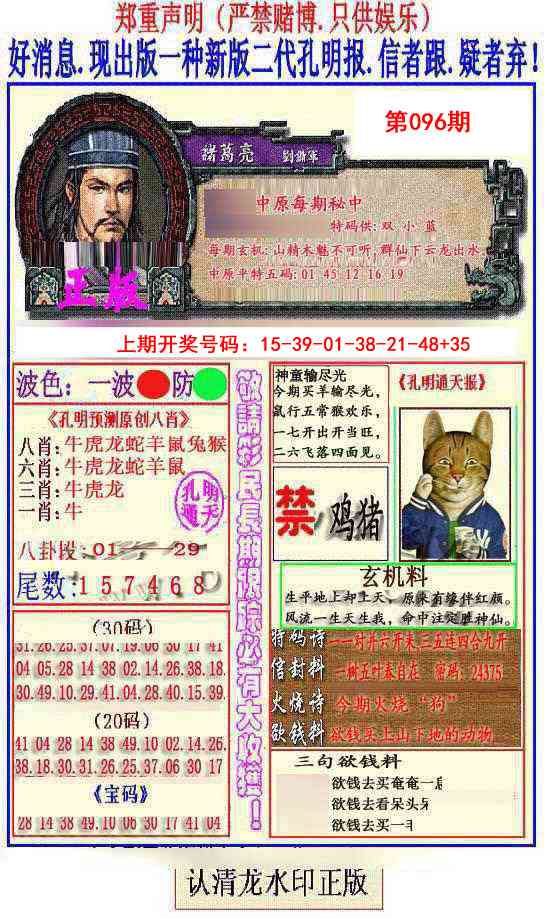 郑重声明（严禁赌博.只供娱乐）
好消息.现出版一种新版二代孔明报.信者跟.疑者弃！
第096期
諸葛亮
中原每期秘中
特码供: 双 小 蓝
每期玄机: 山精木魅不可听, 群仙下云龙出水
中原平特五码: 01 45 12 16 19
正版
上期开奖号码：15-39-01-38-21-48+35
波色：一波 防
《孔明预测原创八肖》
八肖: 牛虎龙蛇羊鼠兔猴
六肖: 牛虎龙蛇羊鼠
三肖: 牛虎龙
一肖: 牛
孔明
通天
八卦段: 01 29
尾数: 1 5 7 4 6 8
(30码)
31.26.25.37.07.19.06 30 17 41
04 05.28 14 38 02.14.26.38.18.
30.49.10 29.41.04.28.40 15.39.
(20码)
41 04 28 14 38 49.10 02.14.26.
38.18.30.31.26.25.37.06 30 17
《宝码》
28 14 38 49.10 06 30 17 41 04
敬請彩民長期跟踪必有大收獲！
神童输尽光
今期买羊输尽光，
鼠行五常猴欢乐，
一七开出开当旺，
二六飞落四面见。
《孔明通天报》
禁 鸡猪
玄机料
生平地上却上天、原来有缘伴红颜。
风流一生天生我，命中注定胜神仙。
特码诗 一一对开六开来 三五连四合九开
信封料 一树五叶春自在 密码: 24375
火烧诗 今期火烧“狗”
欲钱料 欲钱买上山下地的动物
三句欲钱料
欲钱去买奄奄一
欲钱去看呆头
欲钱去买一
认清龙水印正版